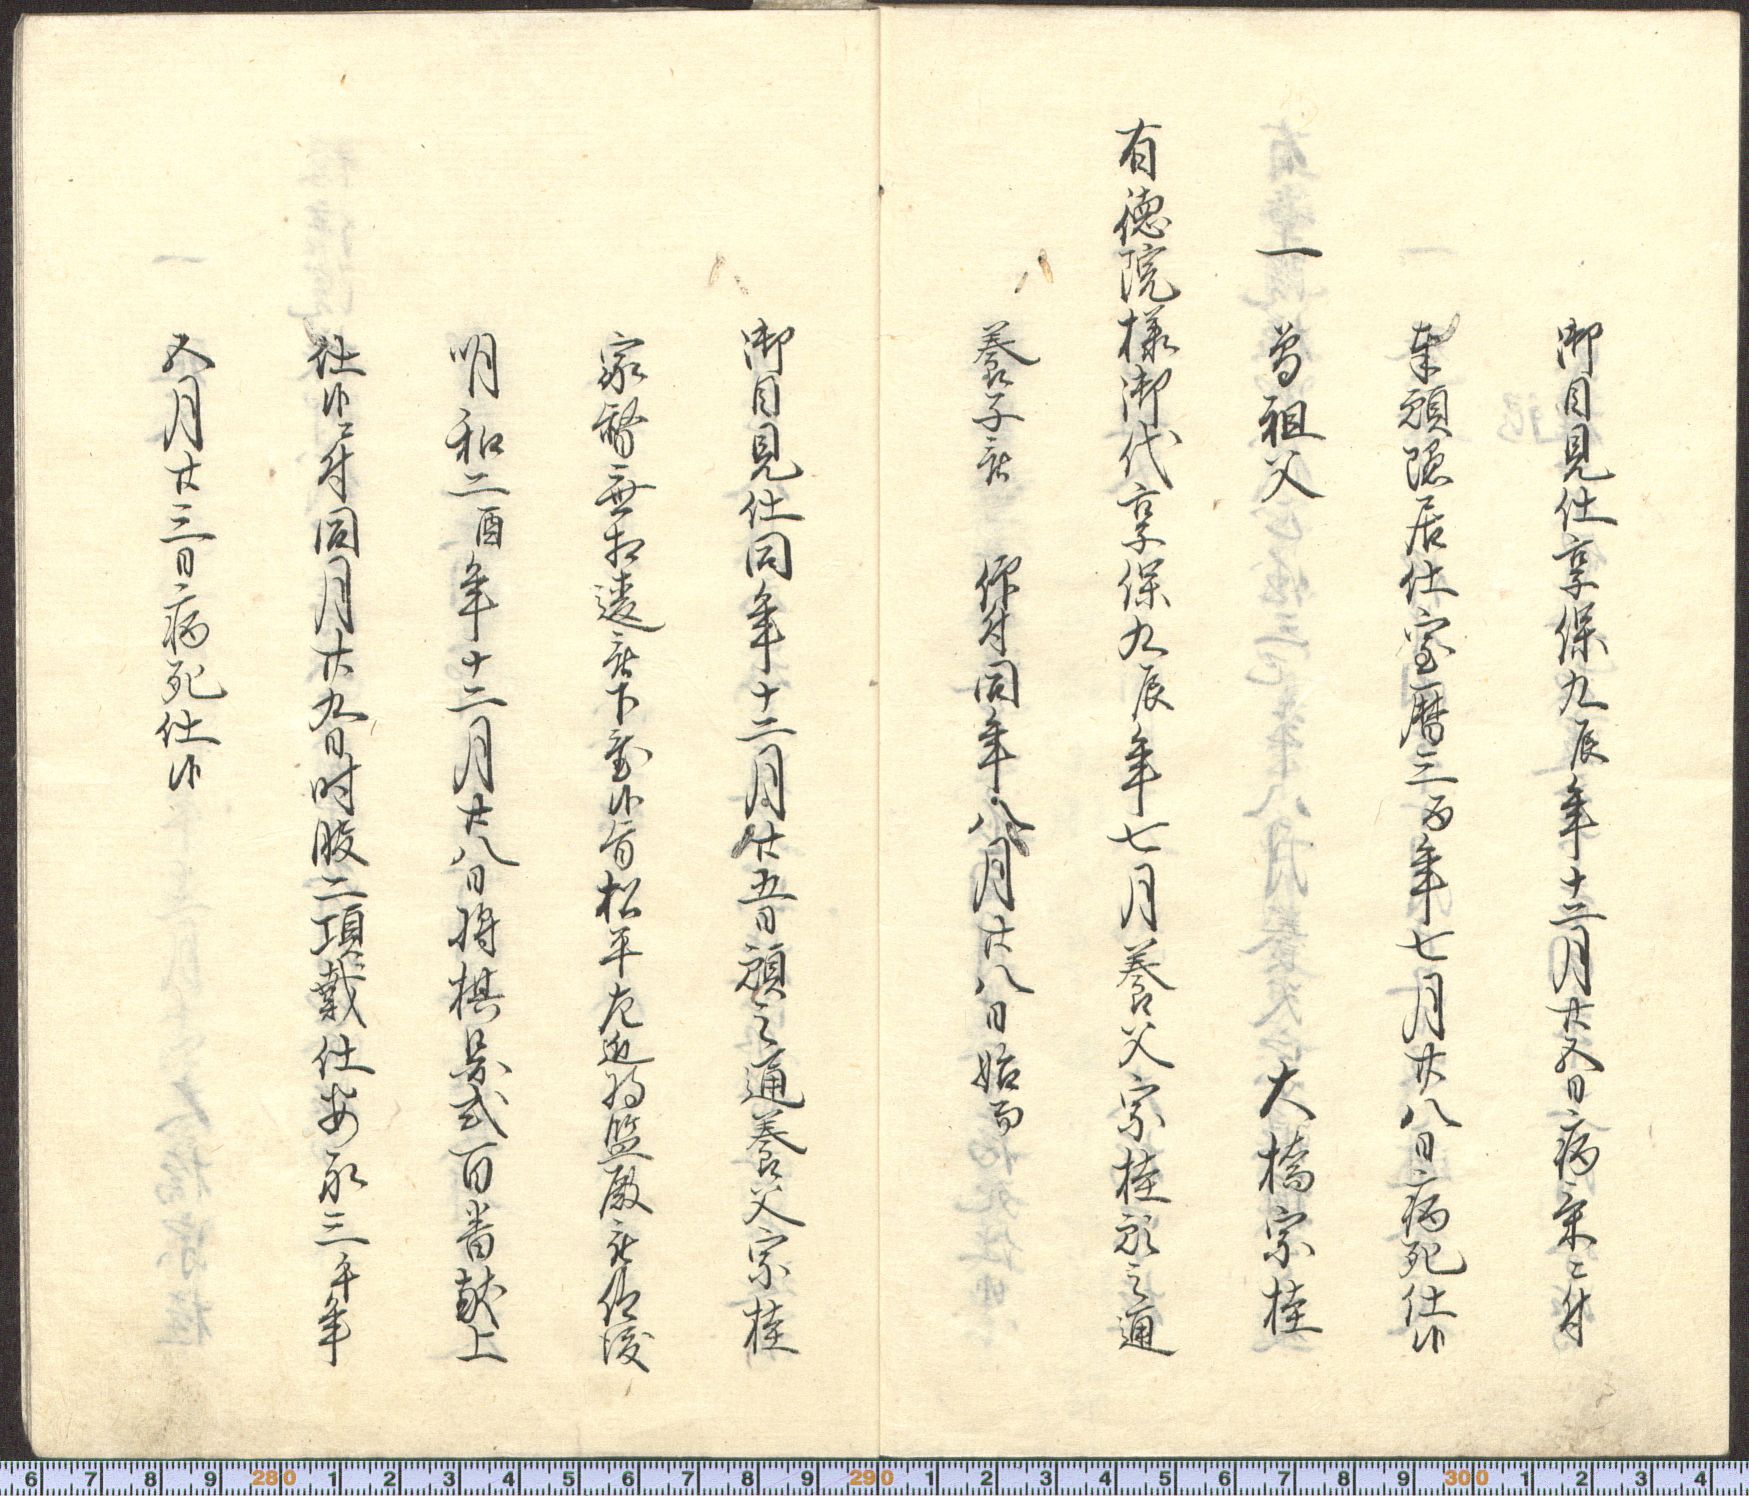 御目見仕享保九辰年十二月廿五日病気ニ付
奉願隠居仕宝暦三酉年七月廿八日病死仕候
一 曽祖父 大橋宗桂
有徳院様御代享保九辰年七月養父宗桂願之通
養子被 仰付同年八月廿八日始而
御目見仕同年十二月廿五日願之通養父宗桂
家督無相違被下置候旨松平左近将監殿被仰渡
明和二酉年十二月廿八日将棋景弐百番献上
仕候ニ付同月廿九日時服二頂戴仕安永三午年
五月廿三日病死仕候